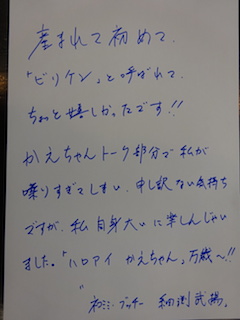 産まれて初めて、
「ビリケン」と呼ばれて、
ちょっと嬉しかったです!!
かえちゃんトーク部分で私が
喋りすぎてしまい、申し訳ない気持ち
ですが、私自身大いに楽しんじゃい
ました。「ハロアイ かえちゃん」万歳〜!!
ネシミ・ブッチー 細渕武揚。